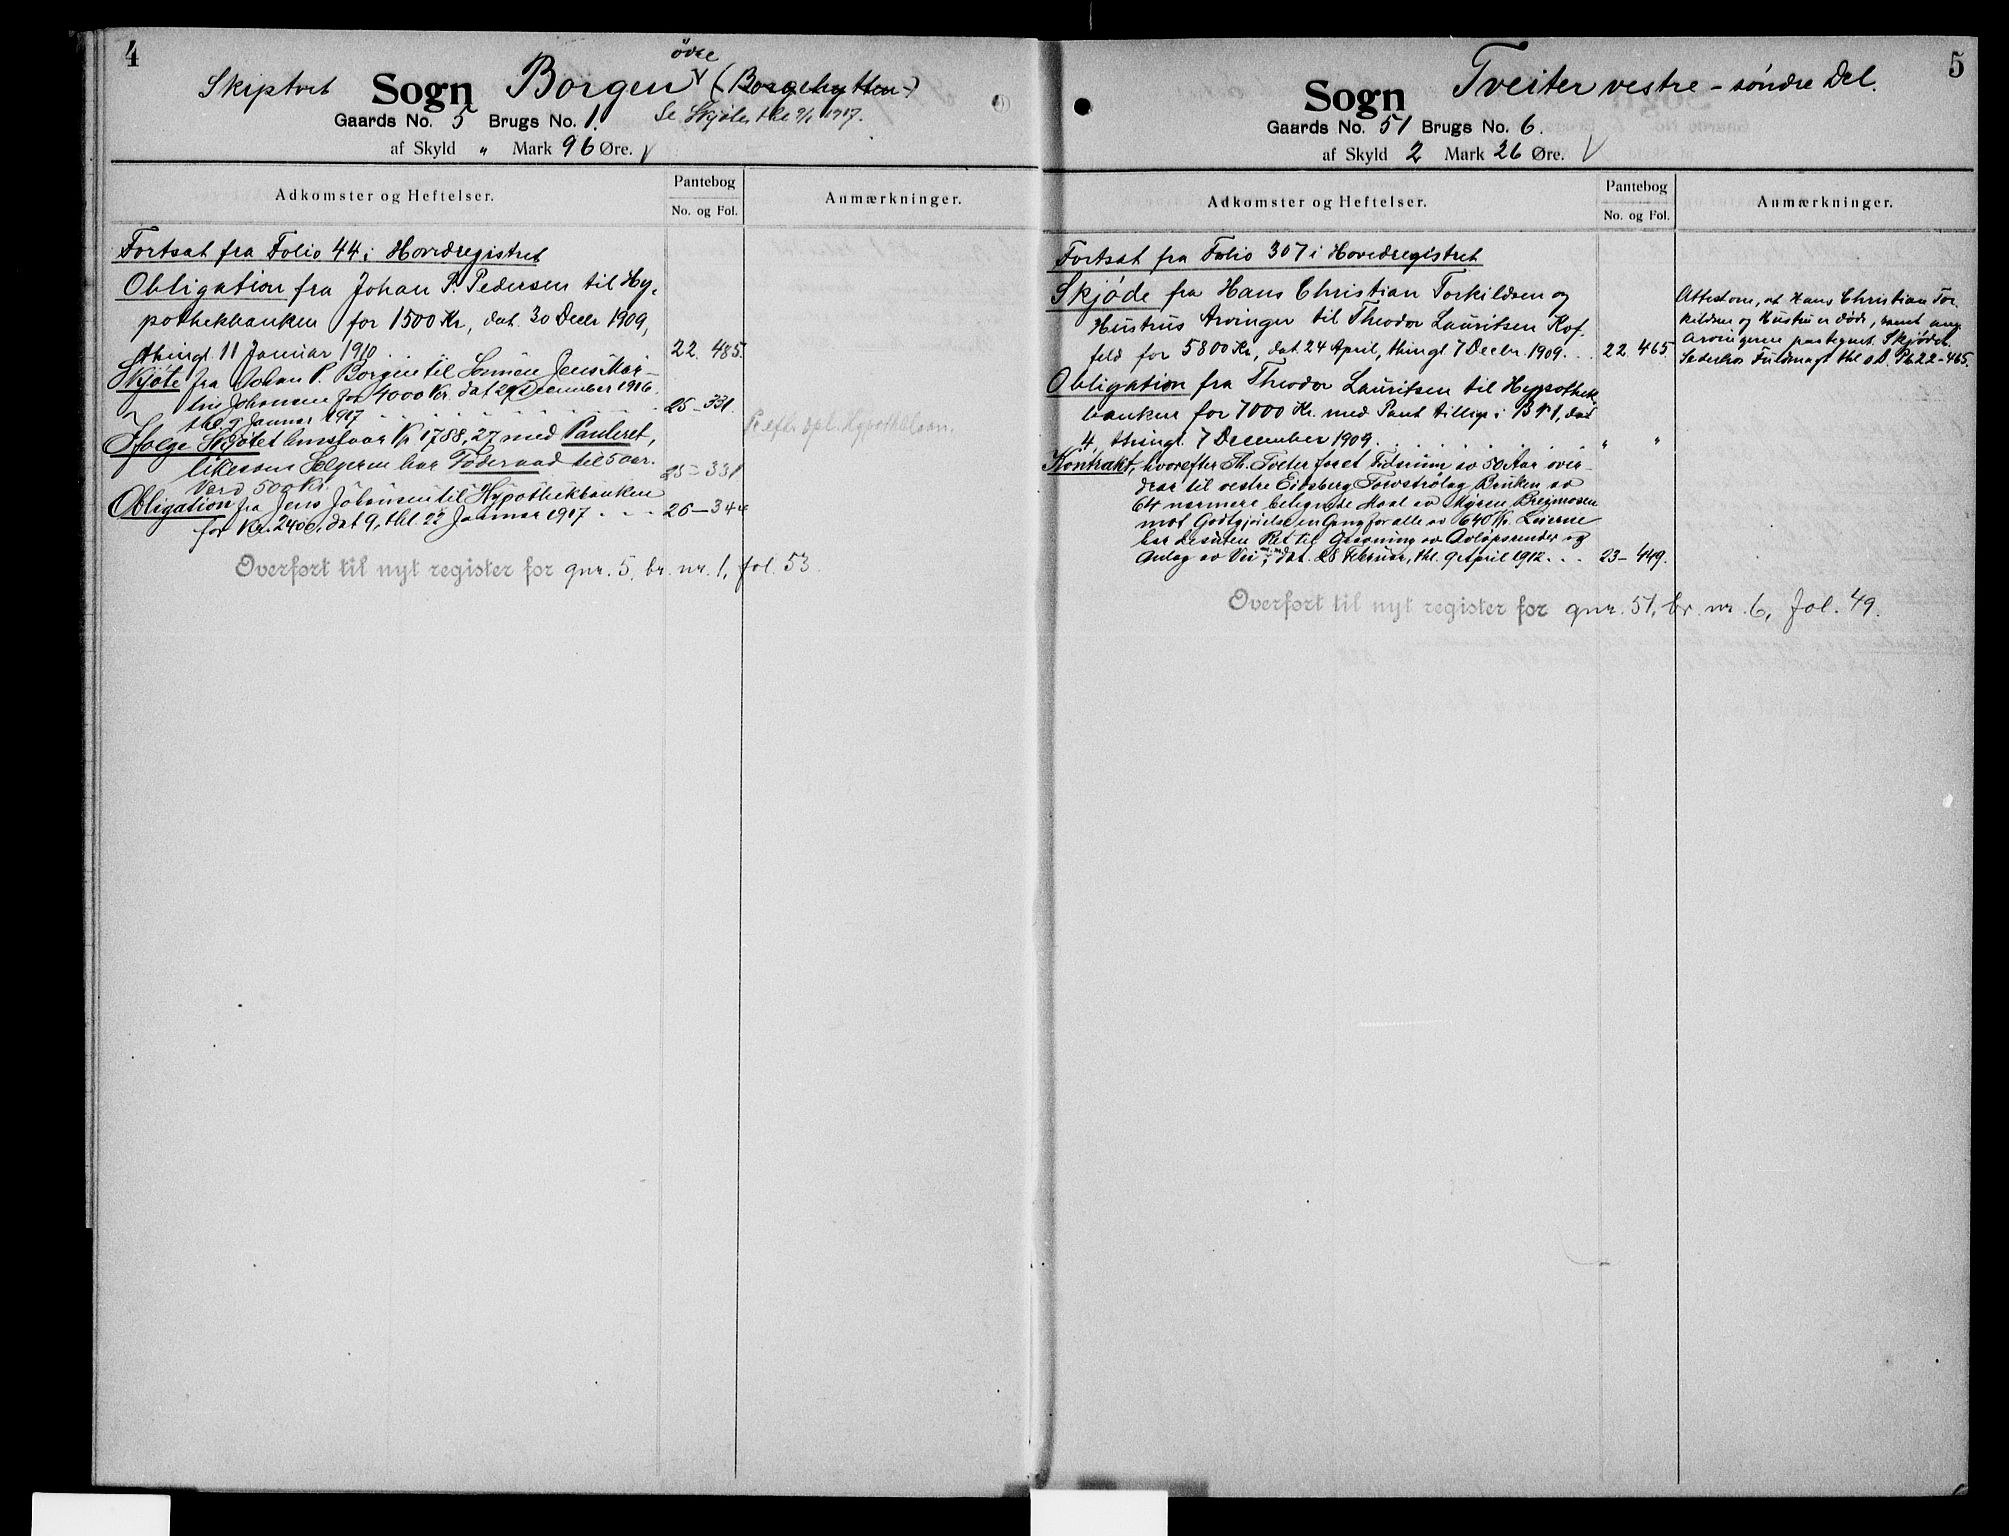 4
Skiptvet Sogn Borgen øvre (Borgehytten)
Se Skjøte thl 9/1 1917.
Gaards No. 5 Brugs No. 1.
af Skyld " Mark 96 Øre.
Adkomster og Heftelser.
Pantebog
No. og Fol.
Anmærkninger.
Fortsat fra Folio 44 i Hovedregistret
Obligation fra Johan P. Pedersen til Hy-
pothekbanken for 1500 Kr, dat. 30 Decbr 1909,
thingl. 11 Januar 1910 . . 22. 485.
Skjøte fra Johan P. Borgen til Sønnen Jens Mar-
Johansen for 4000 Kr. dat 29 December 1916
thl. 9 Januar 1917 . . . 25-331.
Ifølge Skjøtet indestaar Kr 1788,27 med Panteret,
likesom Selgeren har Føderaad til 5 aar.
Værd 500 Kr. 25-331
Obligation fra Jens Johansen til Hypothekbanken
for Kr. 2400, dat 9, thl. 22 Januar 1917 . . . 26-34
Pr. efter opl. Hypotheklaan.
Overført til nyt register for gnr. 5, br. nr. 1, fol. 53
5
Sogn Tveiter vestre - søndre Del.
Gaards No. 51 Brugs No. 6.
af Skyld 2 Mark 26 Øre.
Adkomster og Heftelser.
Pantebog
No. og Fol.
Anmærkninger.
Fortsat fra Folio 307 i Hovedregistret
Skjøde fra Hans Christian Torkildsen og
Hustrus Arvinger til Theodor Lauritsen Kof-
feld for 5800 Kr, dat 24 April, thingl 7 Decbr. 1909 . . 22 465
Attest om, at Hans Christian Tor-
kildsen og Hustru er døde, samt ang.
Arvingerne paategnet Skjødet.
Sederhos Fuldmagt thl s. D. Pb 22-465.
Obligation fra Theodor Lauritsen til Hypothek-
banken for 7000 Kr. med Pant tillige i B № 1, dat
4, thingl. 7 December 1909. . . . " "
Kontrakt, hvorefter Th. Tveter for et Tidsrum av 50 Aar over-
drar til vestre Eidsberg Torvstrølag Bruken av
64 nærmere betegnede Maal av Myren Breimosen
mot Godtgjørelse en Gang for alle av 640 Kr. Leierne
har desuten Ret til Gravning av Avløpsrender og
Anlæg av Vei m. m., dat. 28 Februar, thl. 9 April 1912 . . . 23-449.
Overført til nyt register for gnr. 51, br. nr. 6, fol. 49.